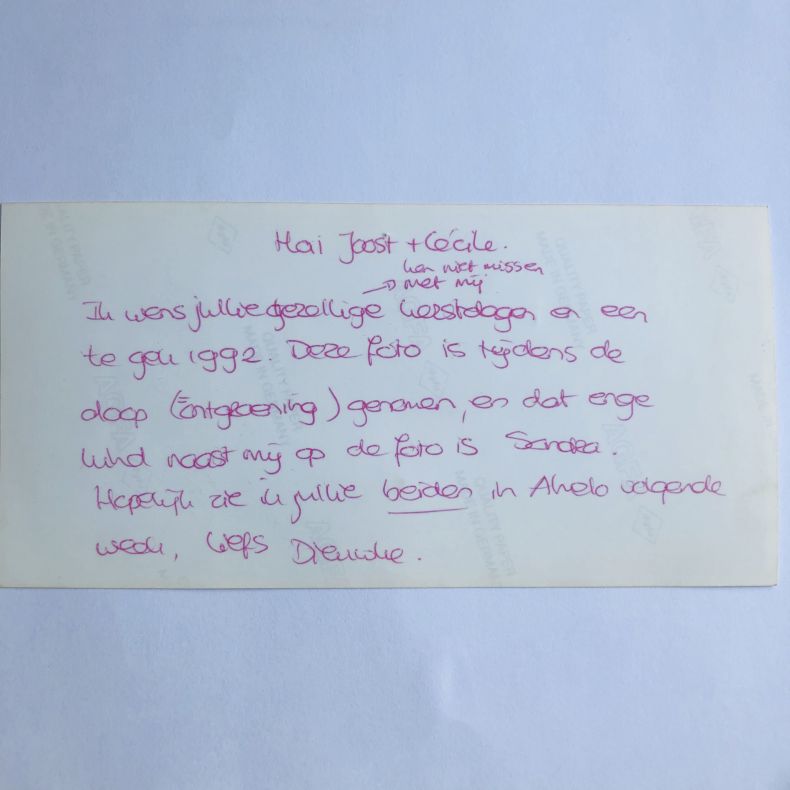 Hai Joost + Cécile.
kan niet missen
→ met mij
Ik wens jullie gezellige kerstdagen en een
te gek 1992. Deze foto is tijdens de
doop (Ontgroening) genomen, en dat enge
kind naast mij op de foto is Sandra.
Hopelijk zie ik jullie beiden in Almelo volgende
week, liefs Dieuwke.
QUALITY PAPER
MADE IN GERMANY
AGFA